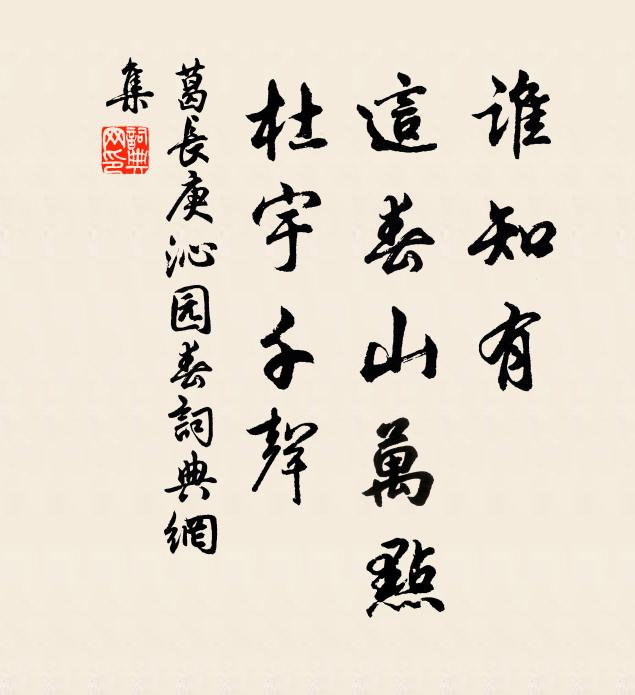 誰知有
這春山萬點
杜宇千聲
葛長庚沁园春詞典網
集
詞典网印